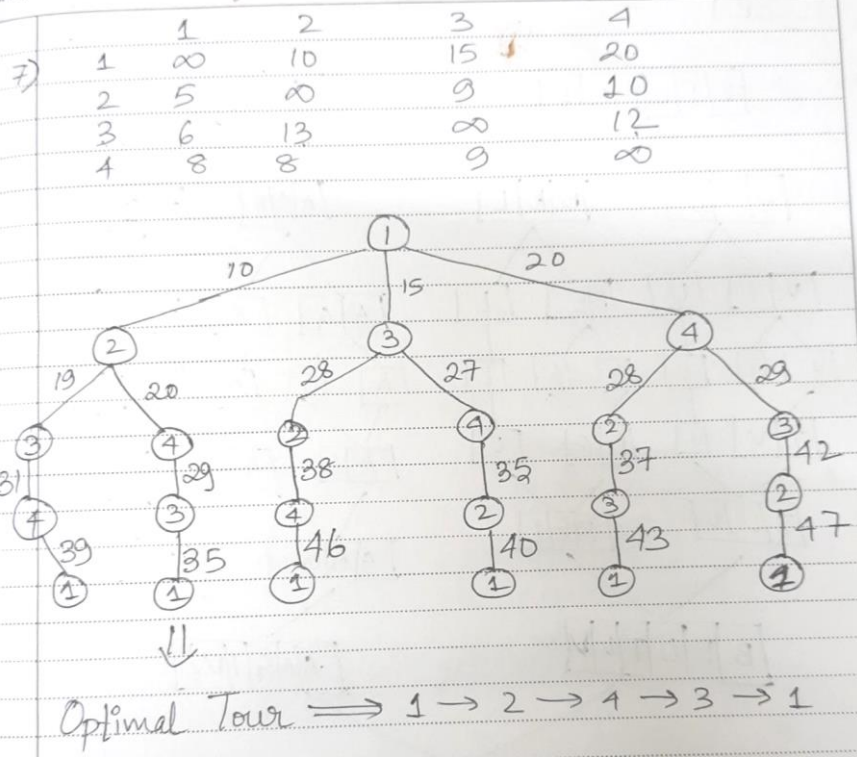 1 2 3 4
7) 1 ∞ 10 15 20
2 5 ∞ 9 10
3 6 13 ∞ 12
4 8 8 9 ∞
1
10 15 20
2 3 4
19 20 28 27 28 29
3 4 2 4 2 3
31 29 38 35 37 42
4 3 4 2 3 2
39 35 46 40 43 47
1 1 1 1 1 1
⇓
Optimal Tour ⟹ 1 → 2 → 4 → 3 → 1